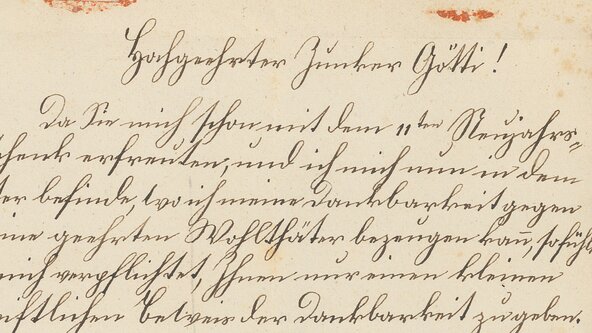 Hochgeehrter Junker Götti!
Da Sie mich schon mit dem 11ten Neujahrs=
schenk erfreuten, und ich mich nun in dem
ter befinde, wo ich meine Dankbarkeit gegen
ine geehrten Wohlthäter bezeugen kann, so fühle
mich verpflichtet, Ihnen nur einen kleinen
nftlichen Beweis der Dankbarkeit zu geben.